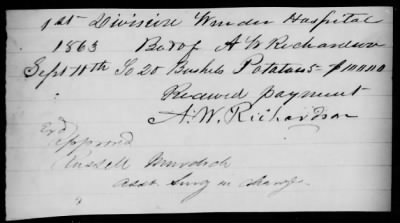 1st Division Winder Hospital
1863 Bot of A W Richardson
Sept 11th To 20 Bushels Potatoes $100.00
Received payment
A. W. Richardson
Exd
Approved
Russell Murdoch
Asst Surg in charge